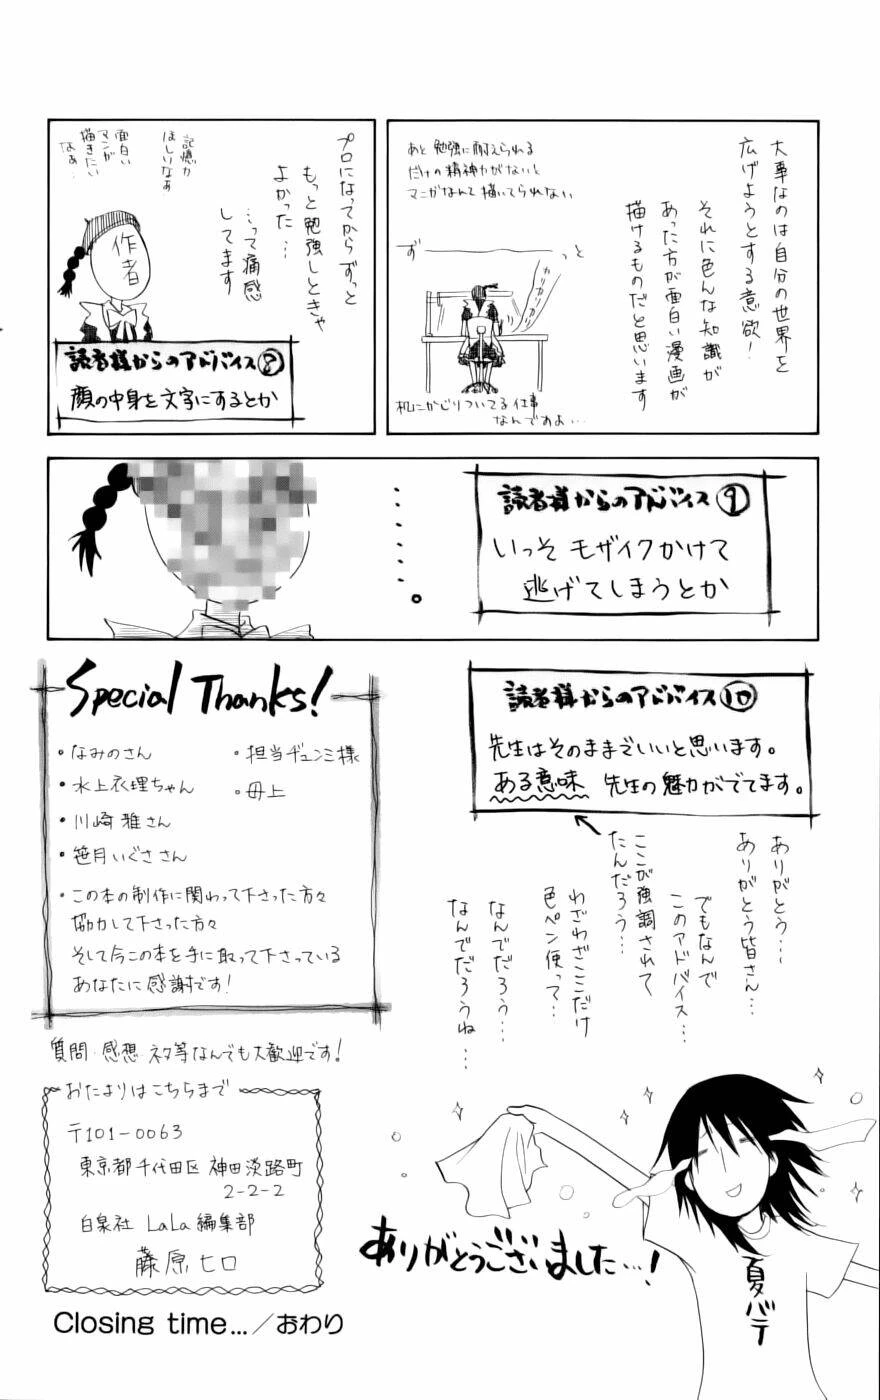 大事なのは自分の世界を
広げようとする意欲!
それに色んな知識が
あった方が面白い漫画が
描けるものだと思います
あと 勉強に耐えられる
だけの精神力がないと
マンガなんて描いてられない
ず
っと
カリカリカリカリ
机にかじりついてる仕事
なんですよ…
プロになってからずっと
もっと勉強しときゃ
よかった…
…って痛感
してます
記憶力
ほしいなぁ
面白い
マンガ
描きたい
なぁ…
作者
読者様からのアドバイス⑧
顔の中身を文字にするとか
読者様からのアドバイス⑨
いっそ モザイクかけて
逃げてしまうとか
・・・・・・。
読者様からのアドバイス⑩
先生はそのままでいいと思います。
ある意味 先生の魅力がでてます。
ありがとう…
ありがとう皆さん…
でもなんで
このアドバイス…
ここが強調されて
たんだろう…
わざわざここだけ
色ペン使って…
なんでだろう…
なんでだろうね…
Special Thanks!
・なみのさん
・水上衣理ちゃん
・川崎 雅さん
・笹月いぐささん
・担当ヂュンミ様
・母上
・この本の制作に関わって下さった方々
協力して下さった方々
そして今この本を手に取って下さっている
あなたに感謝です!
質問・感想・ネタ等なんでも大歓迎です!
おたよりはこちらまで
〒101-0063
東京都千代田区 神田淡路町
2-2-2
白泉社 LaLa編集部
藤原ヒロ
ありがとうございました…!
夏バテ
Closing time.../おわり